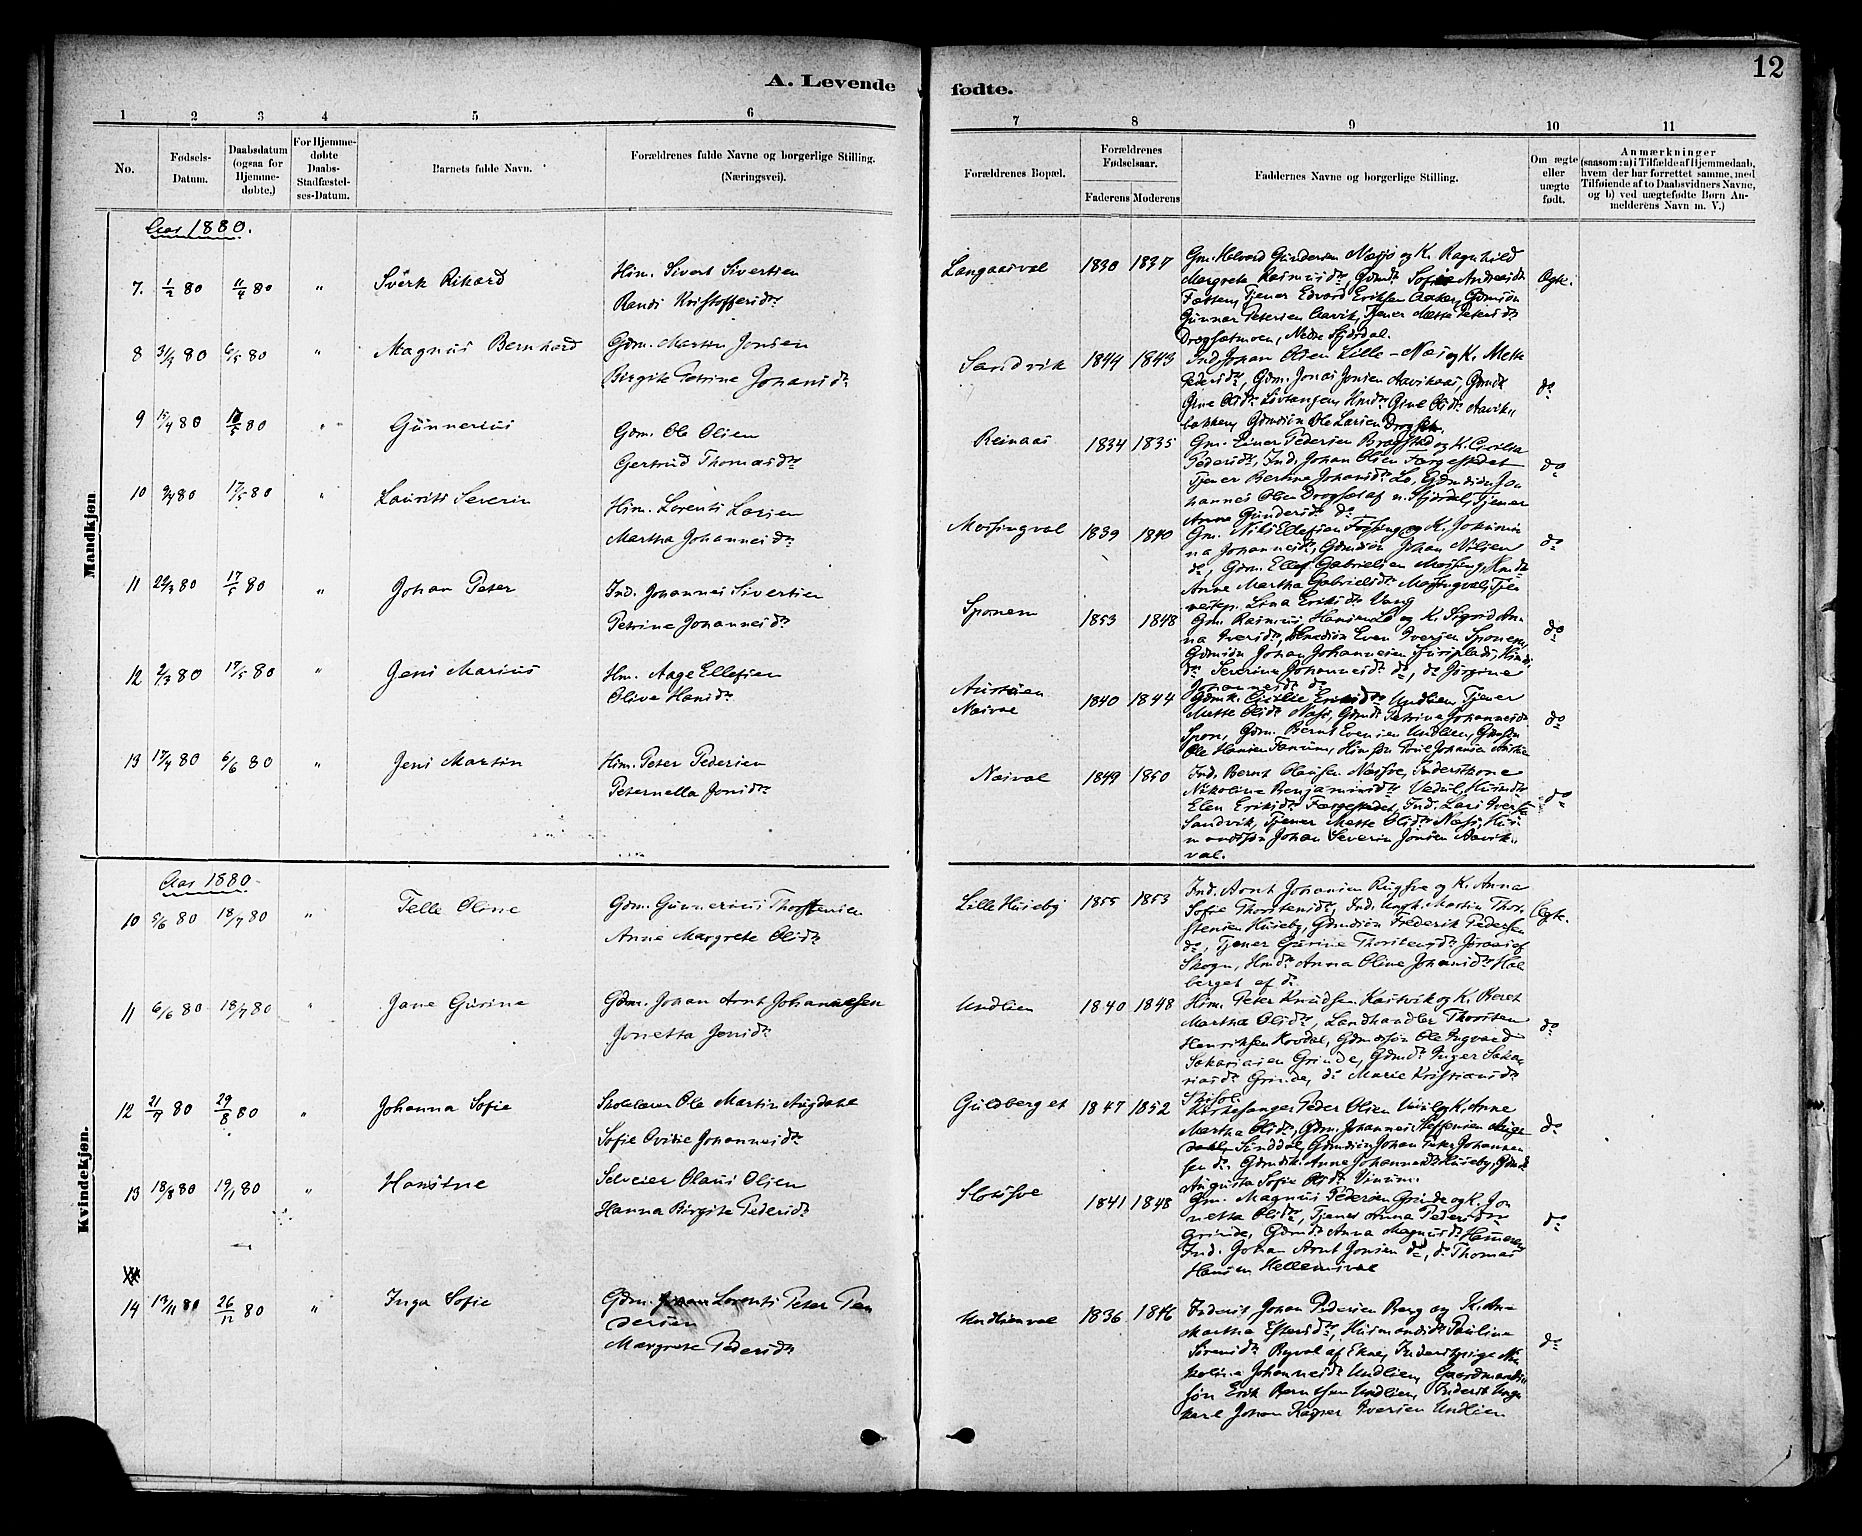 12
A. Levende fødte.
1 2 3 4 5 6 7 8 9 10 11
No.
Fødsels-Datum.
Daabsdatum (ogsaa for Hjemmedøbte.)
For Hjemmedøbte Daabs-Stadfæstelses-Datum.
Barnets fulde Navn.
Forældrenes fulde Navne og borgerlige Stilling. (Næringsvei).
Forældrenes Bopæl.
Forældrenes Fødselsaar.
Faderens Moderens
Faddernes Navne og borgerlige Stilling.
Om ægte eller uægte født.
Anmærkninger (saasom: a) i Tilfælde af Hjemmedaab, hvem der har forrettet samme, med Tilføiende af to Daabsvidners Navne, og b) ved uægtefødte Børn Anmelderens Navn m. V.)
Mandkjøn
Aar 1880.
7. 1/2 80 11/4 80 " Sverk Rikard
Hm. Sivert Sivertsen
Randi Kristoffersdr
Langaasval 1830 1837
Gm. Halvard Gundersen Næss og K. Ragnhild
Margrete Rasmusdr, Gdmdr Sofie Andreasdr
Fossen, Tjener Edvard Eriksen Aaker, Gdmsøn
Gunnar Petersen Aavik, Tjener Mette Petersdr
Drogsetmoen, Nedre Stjørdal.
Ægte.
8 31/3 80 6/5 80 " Magnus Bernhard
Gdm. Martin Jonsen
Birgite Petrine Johansdr
Sandvik 1844 1843
Ind. Johan Olsen Lille-Næs og K. Mette
Pedersdr, Gdm. Jonas Jonsen Aavikaas, Gdmdr
Gine Olsdr Lovtangen, Hmdr Gine Olsdr Aaviks-
bakken, Gdmsøn Ole Larsen Drogset.
do
9 15/4 80 17/5 80 " Gunnerius
Gdm. Ole Olsen
Gertrud Thomasdr
Reinaas 1834 1835
Gm. Einer Pedersen Bragstad og K. Cicilia
Pedersdr, Ind. Johan Olsen Færgestedet
Tjener Berthe Johansdr Lo, Gdmdsøn Jo-
hannes Olsen Drogset af n. Stjørdal, Tjener
Anne Gundersdr do
do
10 9/4 80 17/5 80 " Laurits Severin
Hm. Lorents Larsen
Martha Johannesdr
Mossingval 1839 1840
Gm. Nils Ellefsen Fossing og K. Johanni-
na Johannesdr, Gdmdsøn Johan Nilsen
do, Gdm. Ellef Gabrielsen Mossing, Hmdr
Anne Martha Gabrielsdr Mossingval, Tje-
nestep. Lina Eriksdr Vang
do
11 22/3 80 17/5 80 " Johan Peter
Ind. Johannes Sivertsen
Petrine Johannesdr
Sponem 1853 1848
Gdm. Rasmus Hansen Lo og K. Sigrid An-
na Iversdr, Hmdsøn Even Iversen Sponem,
Gdmsøn Johan Johannesen
do Severine Johannesdr do, do Jørgine
Johannesdr do
do
12 2/3 80 17/5 80 " Jens Marius
Hm. Aage Ellefsen
Olive Hansdr
Næsval 1840 1844
Gdmk. Cicilie Eriksdr Undlien, Tjener
Mette Olsdr Næss, Gdmdr Petrine Johannesdr
Spon, Gdm. Bernt Evensen Undlien, Gdmsøn
Ole Hansen
do
13 17/4 80 6/6 80 " Jens Martin
Hm. Peter Pedersen
Peternella Jonsdr
Næsval 1849 1850
Ind. Bernt Olausen Næssve, Inderstkone
Nikoline Benjaminsdr Vedul, Husmdr
Elen Eriksdr Færgestedet, Ind. Lars Iversen
Sandvik, Tjener Mette Olsdr Næss, Hus-
mandssøn Johan Severin Jonsen Aavik-
val.
do
Kvindekjøn.
Aar 1880
10 5/6 80 18/7 80 " Telle Oline
Gdm. Gunnerius Thorstensen
Anne Margrete Olsdr
Lille Huseby 1855 1853
Ind. Arnt Johansen Rugsve og K. Anna
Sofie Thorstensdr, Ind. Ungk. Martin Thor-
stensen Huseby, Gdmdsøn Frederik Pedersen
do, Tjener Gurine Thorstensdr Joraas af
Skogn, Hmdr Anna Oline Johansdr Hal-
berget af do
Ægte.
11 6/6 80 18/7 80 " Jane Gurine
Gdm. Johan Arnt Johannesen
Jonetta Jonsdr
Undlien 1840 1848
Hm. Peter Knudsen Kastvik og K. Beret
Martha Olsdr, Landhandler Thorsten
Henriksen Kovdal, Gdmdssøn Ole Ingvard
Sakariasen Grinde, Gdmdr Inger Saka-
riasdr Grinde, do Marie Kristiansdr
do
12 21/7 80 29/8 80 " Johanna Sofie
Skolelærer Ole Martin Augdahl
Sofie Ovidie Johannesdr
Guldberget 1847 1852
Kirkesanger Peder Olsen Vuul og K. Anne
Martha Olsdr, Gdm. Johannes Steffensen Aug-
dahl, Sunddal, Gdmdsøn Johan Peter Johannes-
sen do Gdmdk. Anne Johannesdr Huseby, Gdmdr
Augusta Sofie Olsdr Vinum.
do
13 18/8 80 19/11 80 " Hansine
Selveier Olaus Olsen
Hanna Birgite Pedersdr
Slotsve 1841 1848
Gm. Magnus Pedersen Grinde og K. Jo-
netta Olsdr, Tjener Anna Pedersdr
Grinde, Gdmdr Anna Magnusdr Hammeren
Ind. Johan Arnt Jonsen do, do Thomas
Hansen Hellemsval
do
14 13/11 80 26/12 80 " Inga Sofie
Gdm. Lorents Peter Pe-
dersen
Margrete Pedersdr
Undlienval 1836 1846
Inderst Johan Pedersen Berg og K. Ane
Martha Estersdr, Husmandsdr Pauline
Sørensdr Byval af Ekne, Inderstpige Ni-
koline Johannesdr Undlien, Gaardmands-
søn Erik Berntsen Undlien, Inderst Ung-
karl Johan Kasper Iversen Undlien
do